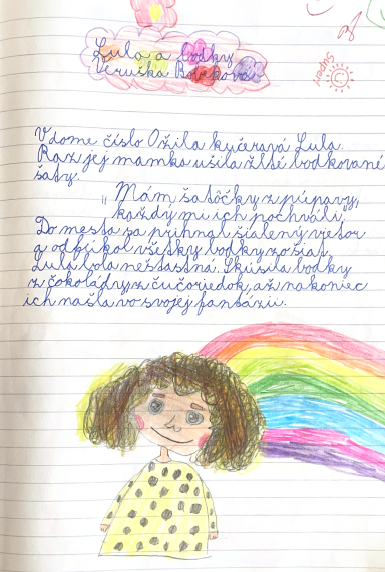 Lula a bodky
Veruška Bobeková
Super
V dome číslo 0 žila kučeravá Lula.
Raz jej mamka ušila žlté bodkované
šaty.
„Mám šatôčky z púpavy,
každý mi ich pochváli."
Do mesta sa prihnal šialený vietor
a odfúkol všetky bodky zo šiat.
Lula bola nešťastná. Skúsila bodky
z čokolády, z čučoriedok, až nakoniec
ich našla vo svojej fantázii.